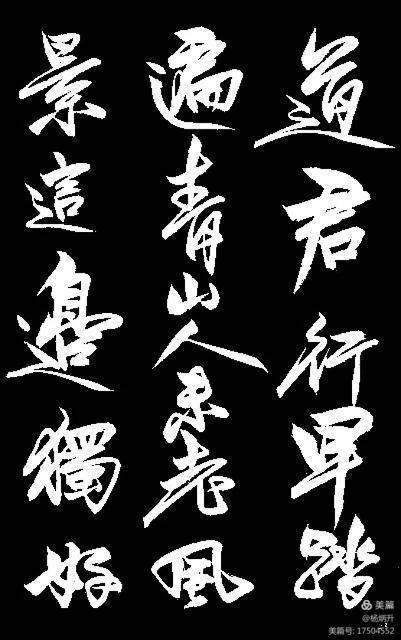 道君行早踏
遍青山人未老風
景這邊獨好
美篇
@杨炳升
美篇号: 17504552